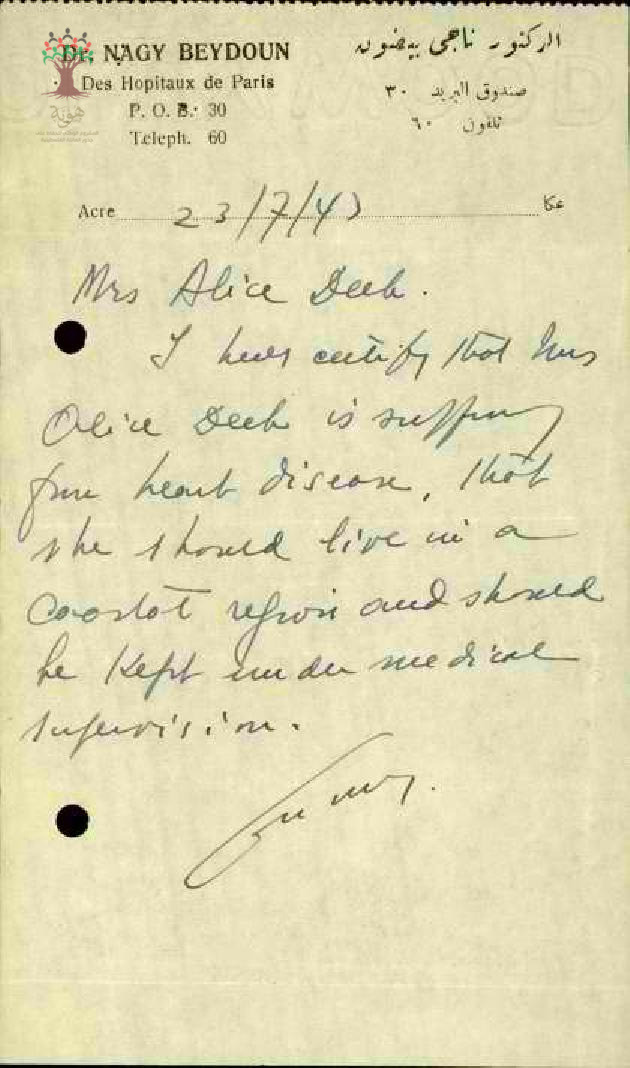 Dr. NAGY BEYDOUN
Des Hopitaux de Paris
P. O. B. 30
Teleph. 60
الدكتور ناجي بيضون
صندوق البريد ٣٠
تلفون ٦٠
هوية
Acre 23/7/43 عكا
Mrs Alice Deeb.
I certify that Mrs
Alice Deeb is suffering
from heart disease, that
she should live in a
coastal region and should
be kept under medical
supervision.